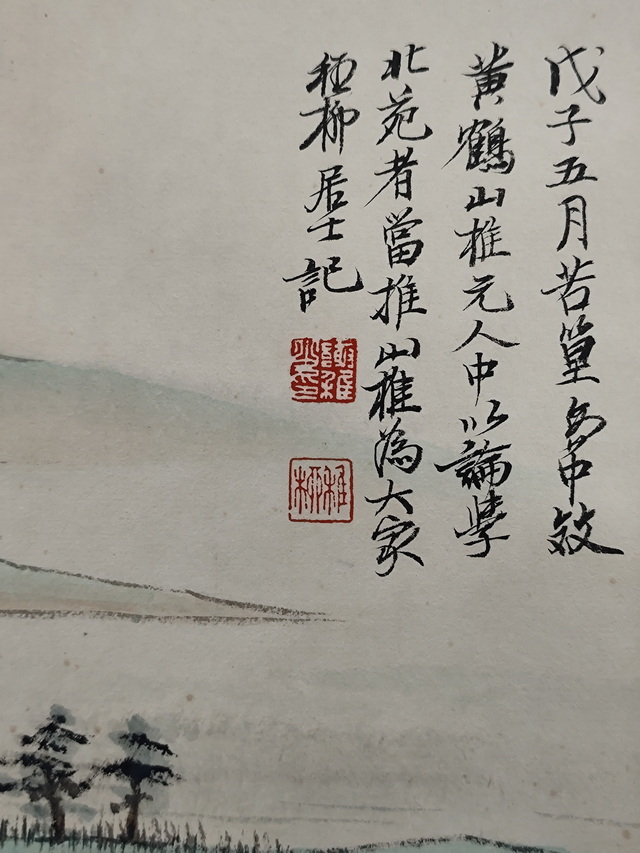 戊子五月苦篁齋中效
黃鶴山樵元人中以論學
北苑者當推山樵為大家
稚柳居士記
稚柳